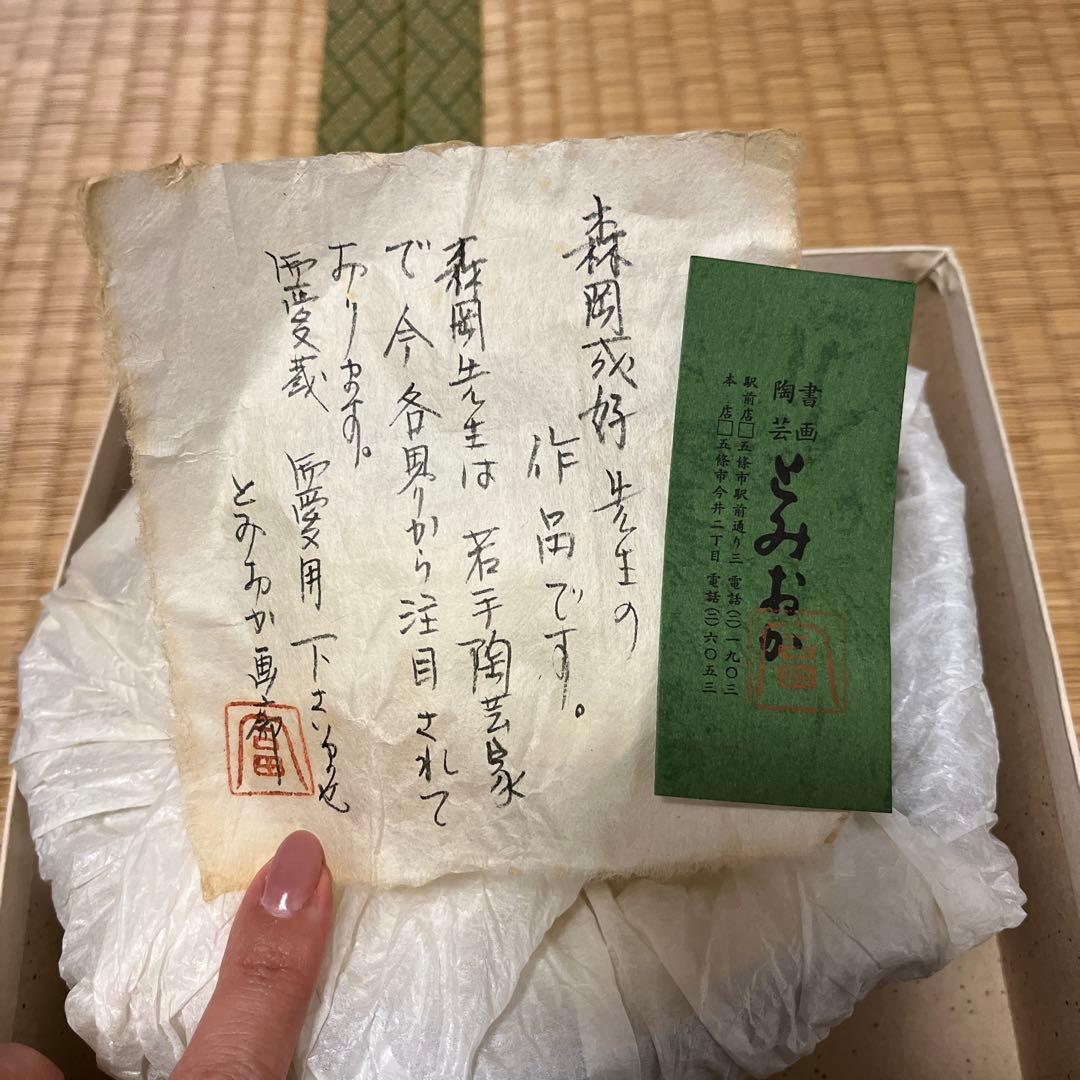 森岡成好先生の
作品です。
森岡先生は 若手陶芸家
で今各界から注目されて
おります。
愛蔵 愛用 下さい
とみおか画廊
富
書画
陶芸
とみおか
駅前店□五條市駅前通り三 電話(二)一九〇三
本店□五條市今井二丁目 電話(二)六〇五三
富